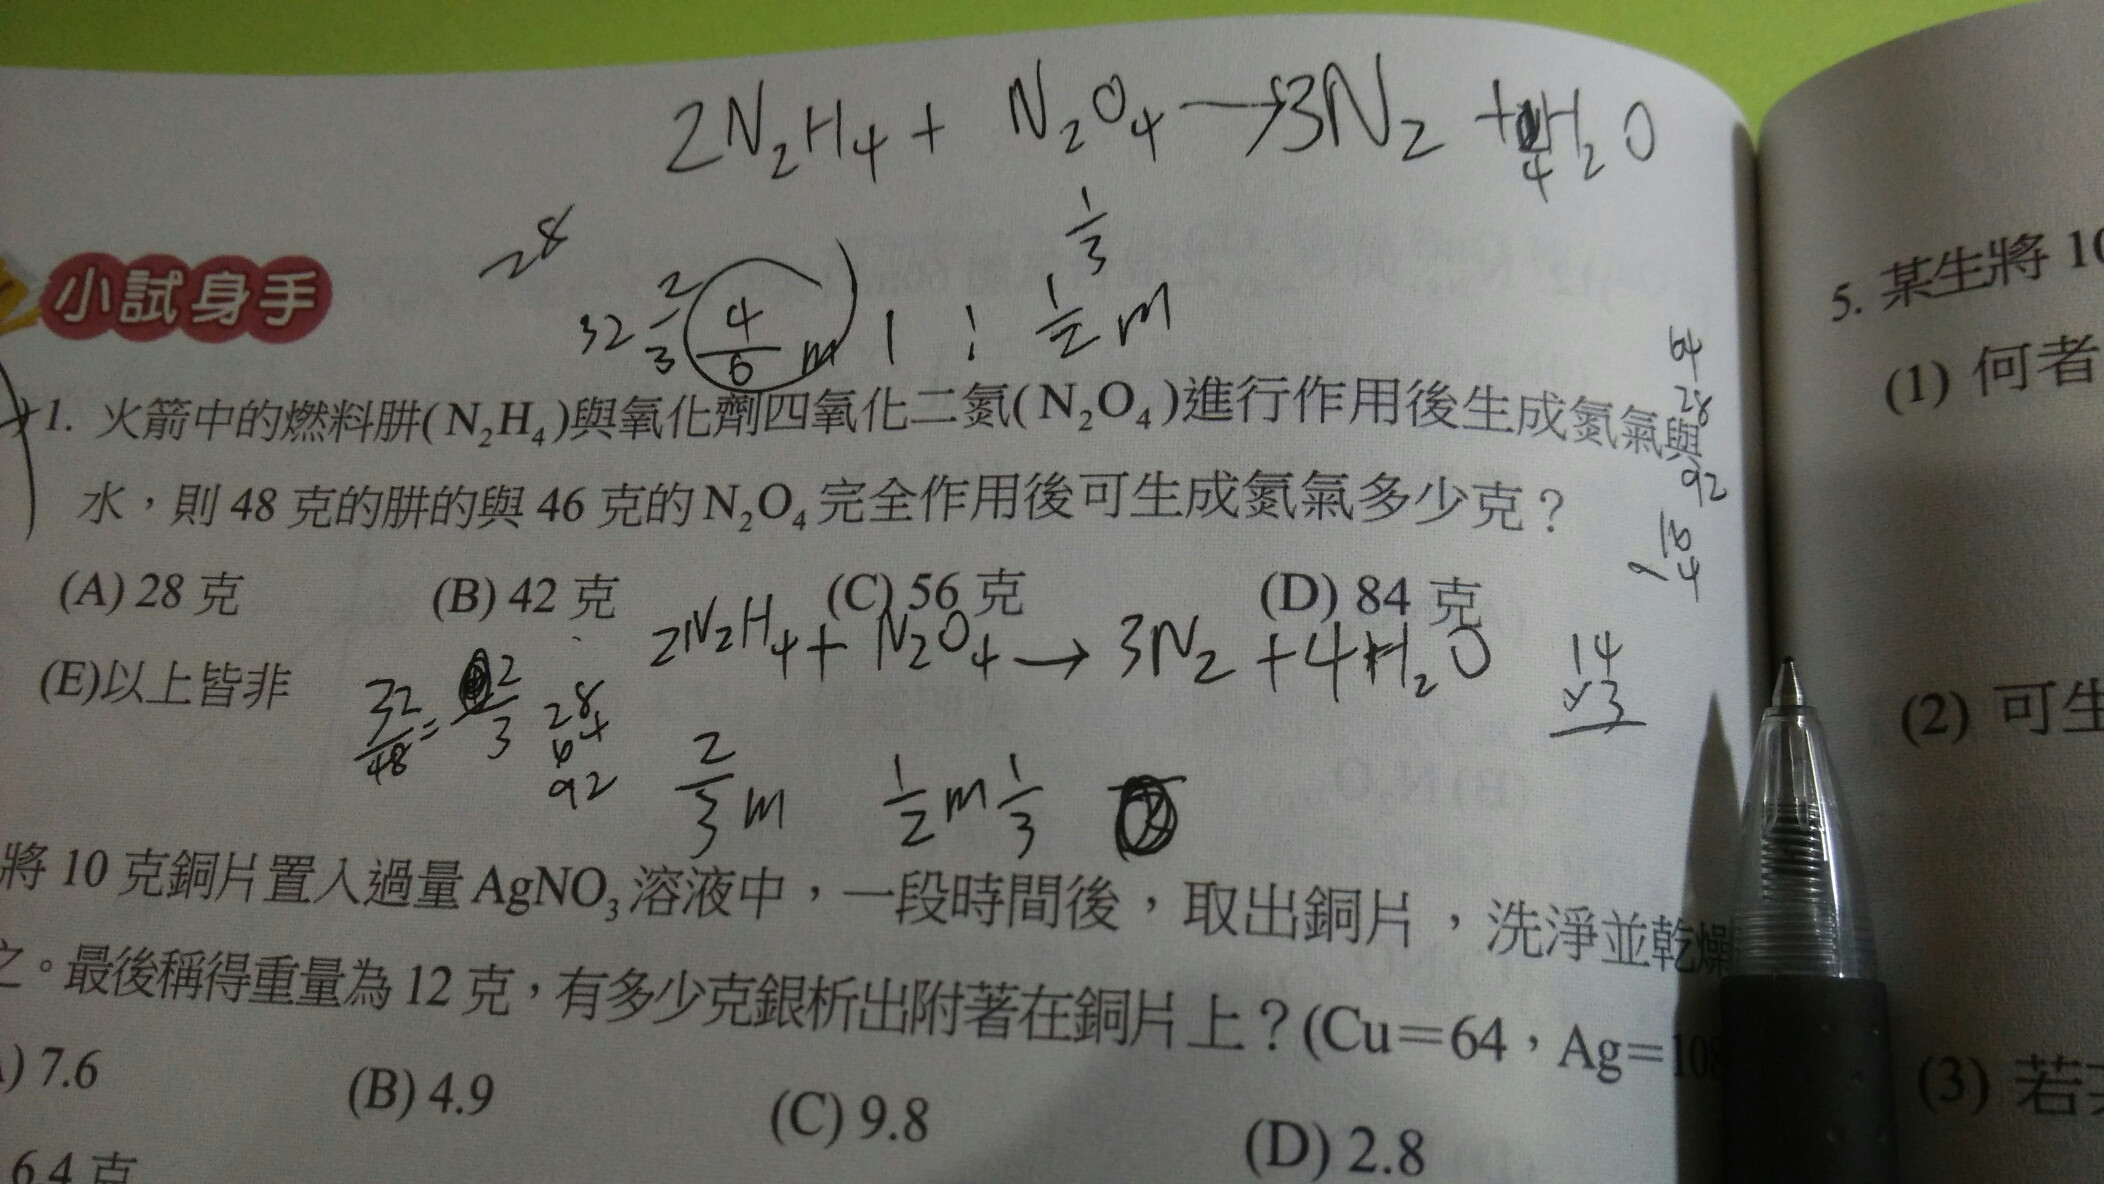 2N₂H₄ + N₂O₄ → 3N₂ + 4H₂O
28
1/3
32 2/3 4/6 m 1 : 1/2 m
小試身手
64
28
92
1. 火箭中的燃料肼(N₂H₄)與氧化劑四氧化二氮(N₂O₄)進行作用後生成氮氣與
水，則 48 克的肼的與 46 克的 N₂O₄ 完全作用後可生成氮氣多少克？
(A) 28 克 (B) 42 克 (C) 56 克 (D) 84 克
2N₂H₄ + N₂O₄ → 3N₂ + 4H₂O
(E)以上皆非
32/48 = 2/3
28
64
92
14
×3
2/3 m 1/2 m 1/3
將 10 克銅片置入過量 AgNO₃ 溶液中，一段時間後，取出銅片，洗淨並乾燥
之。最後稱得重量為 12 克，有多少克銀析出附著在銅片上？(Cu＝64，Ag＝108
) 7.6 (B) 4.9 (C) 9.8 (D) 2.8
6.4 克
5. 某生將 10
(1) 何者
(2) 可生
(3) 若